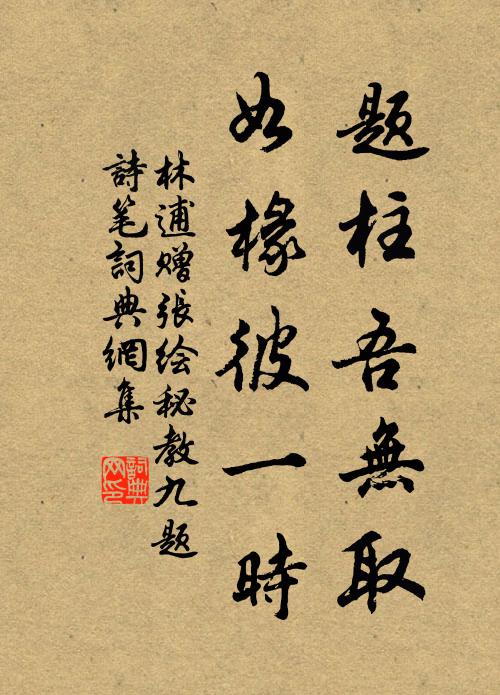 題柱吾無取
如椽彼一時
林逋贈張绘秘教九題
詩笔詞典網集
詞典网印